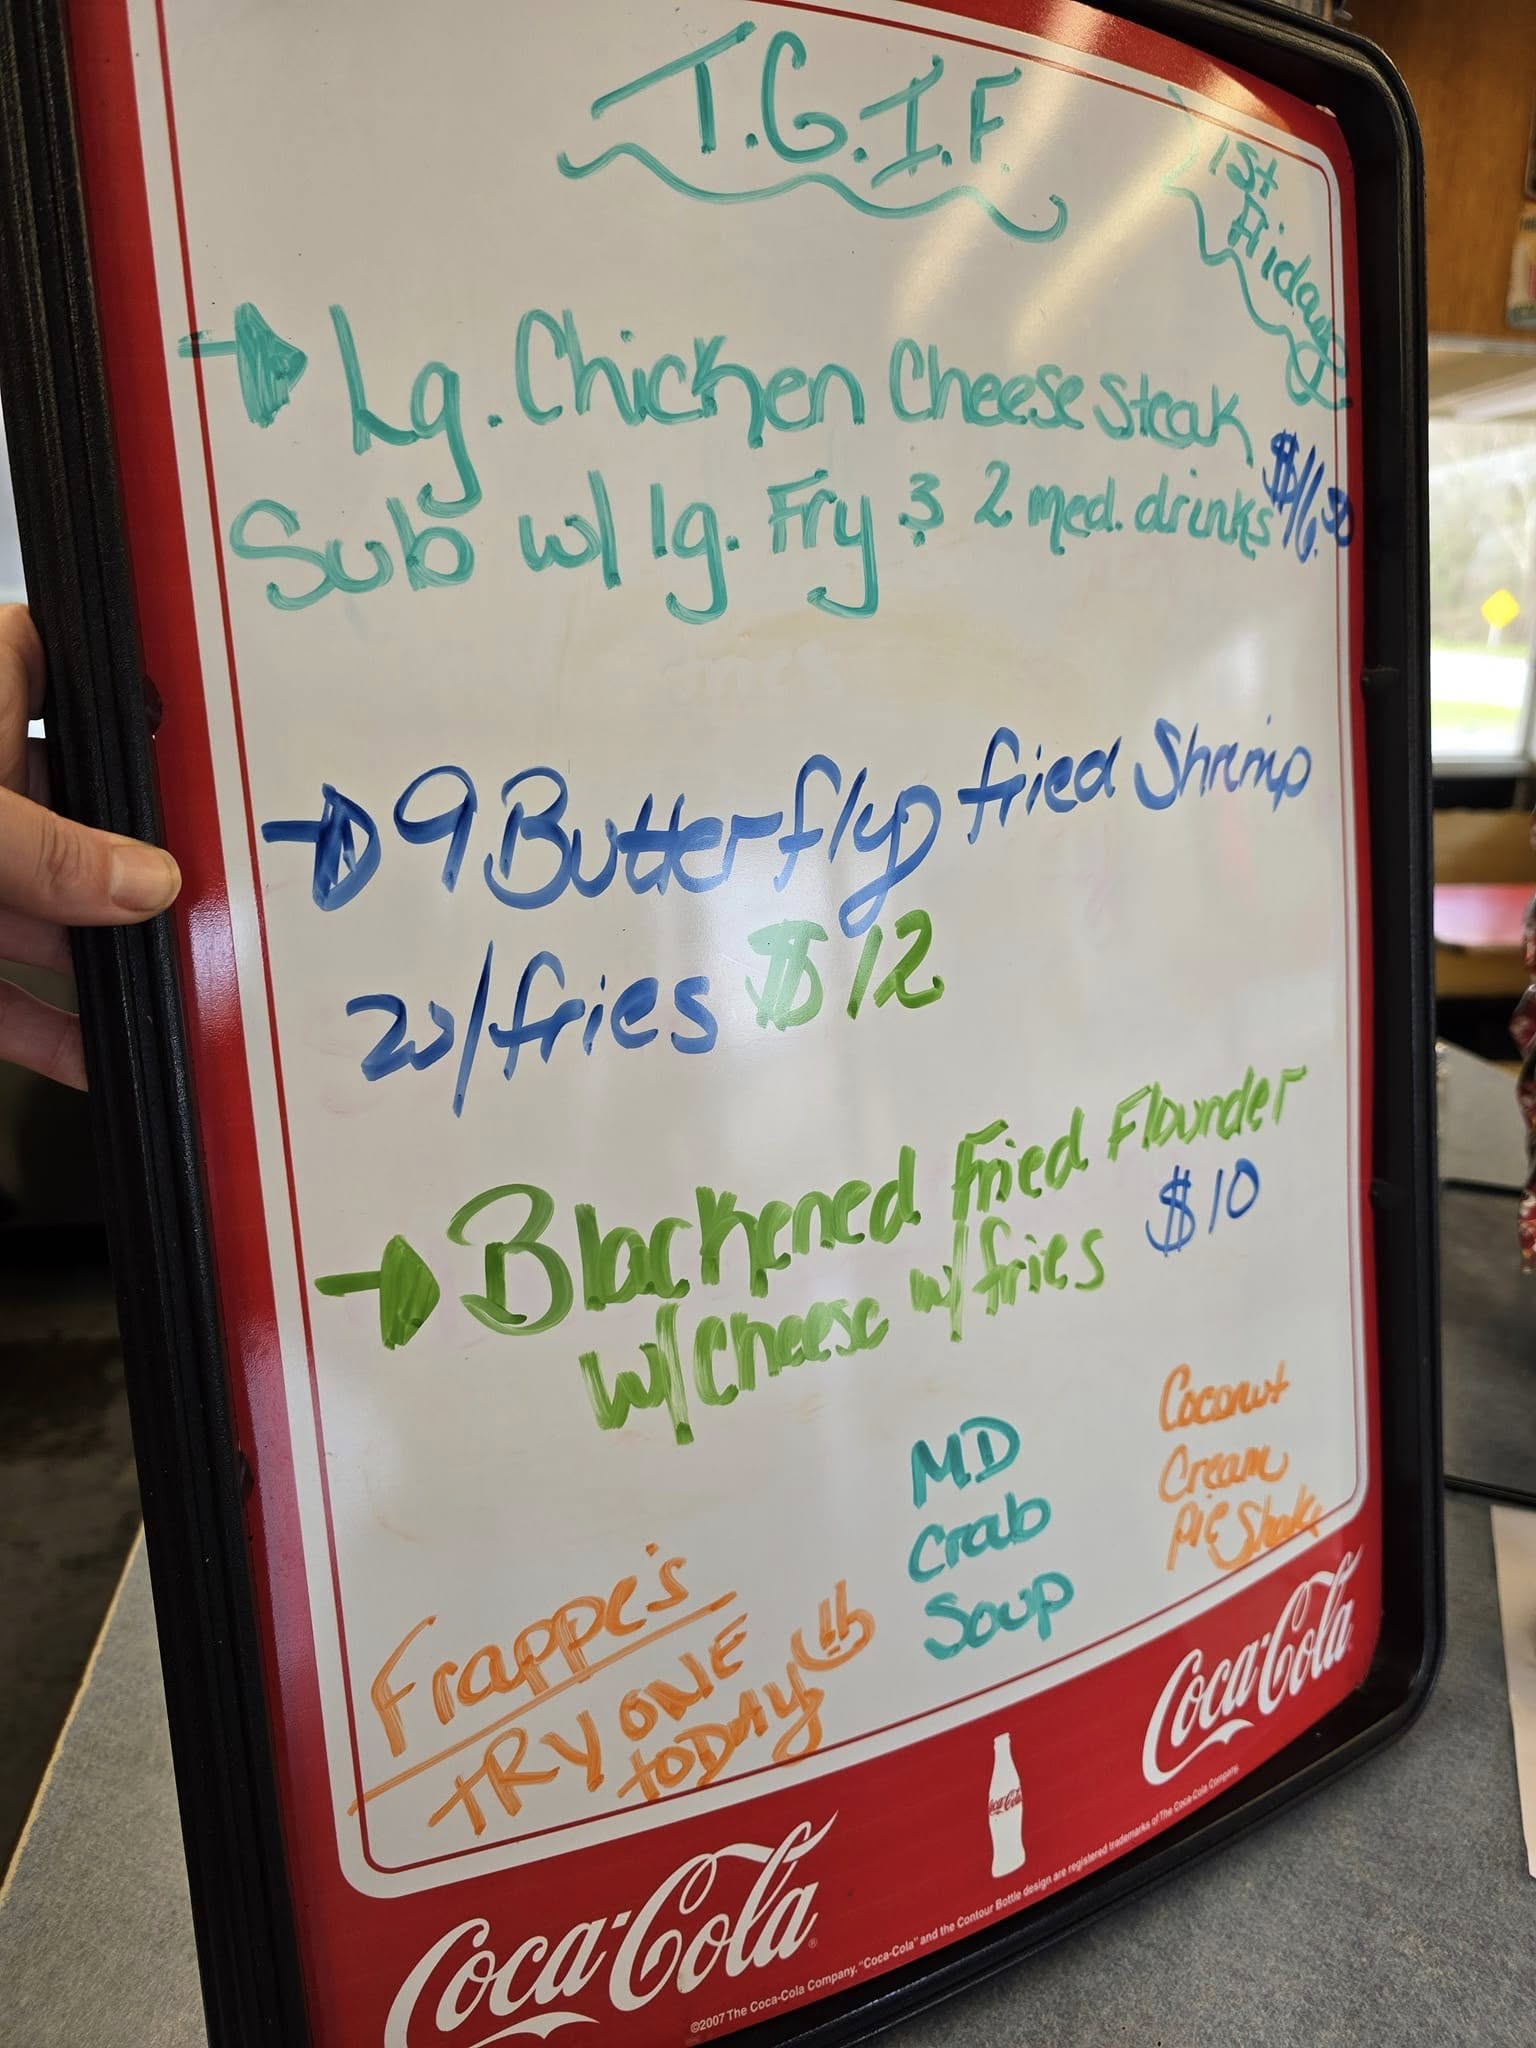 T.G.I.F.
1st
Friday
Lg. Chicken Cheese Steak
Sub w/ lg. Fry & 2 med. drinks $16.50
9 Butterfly fried Shrimp
w/fries $12
Blackened Fried Flounder
w/cheese w/fries $10
MD
Crab
Soup
Coconut
Cream
Pie Shake
Frappe's
TRY ONE
TODAY
Coca-Cola
Coca-Cola
Coca-Cola
©2007 The Coca-Cola Company. "Coca-Cola" and the Contour Bottle design are registered trademarks of The Coca-Cola Company.